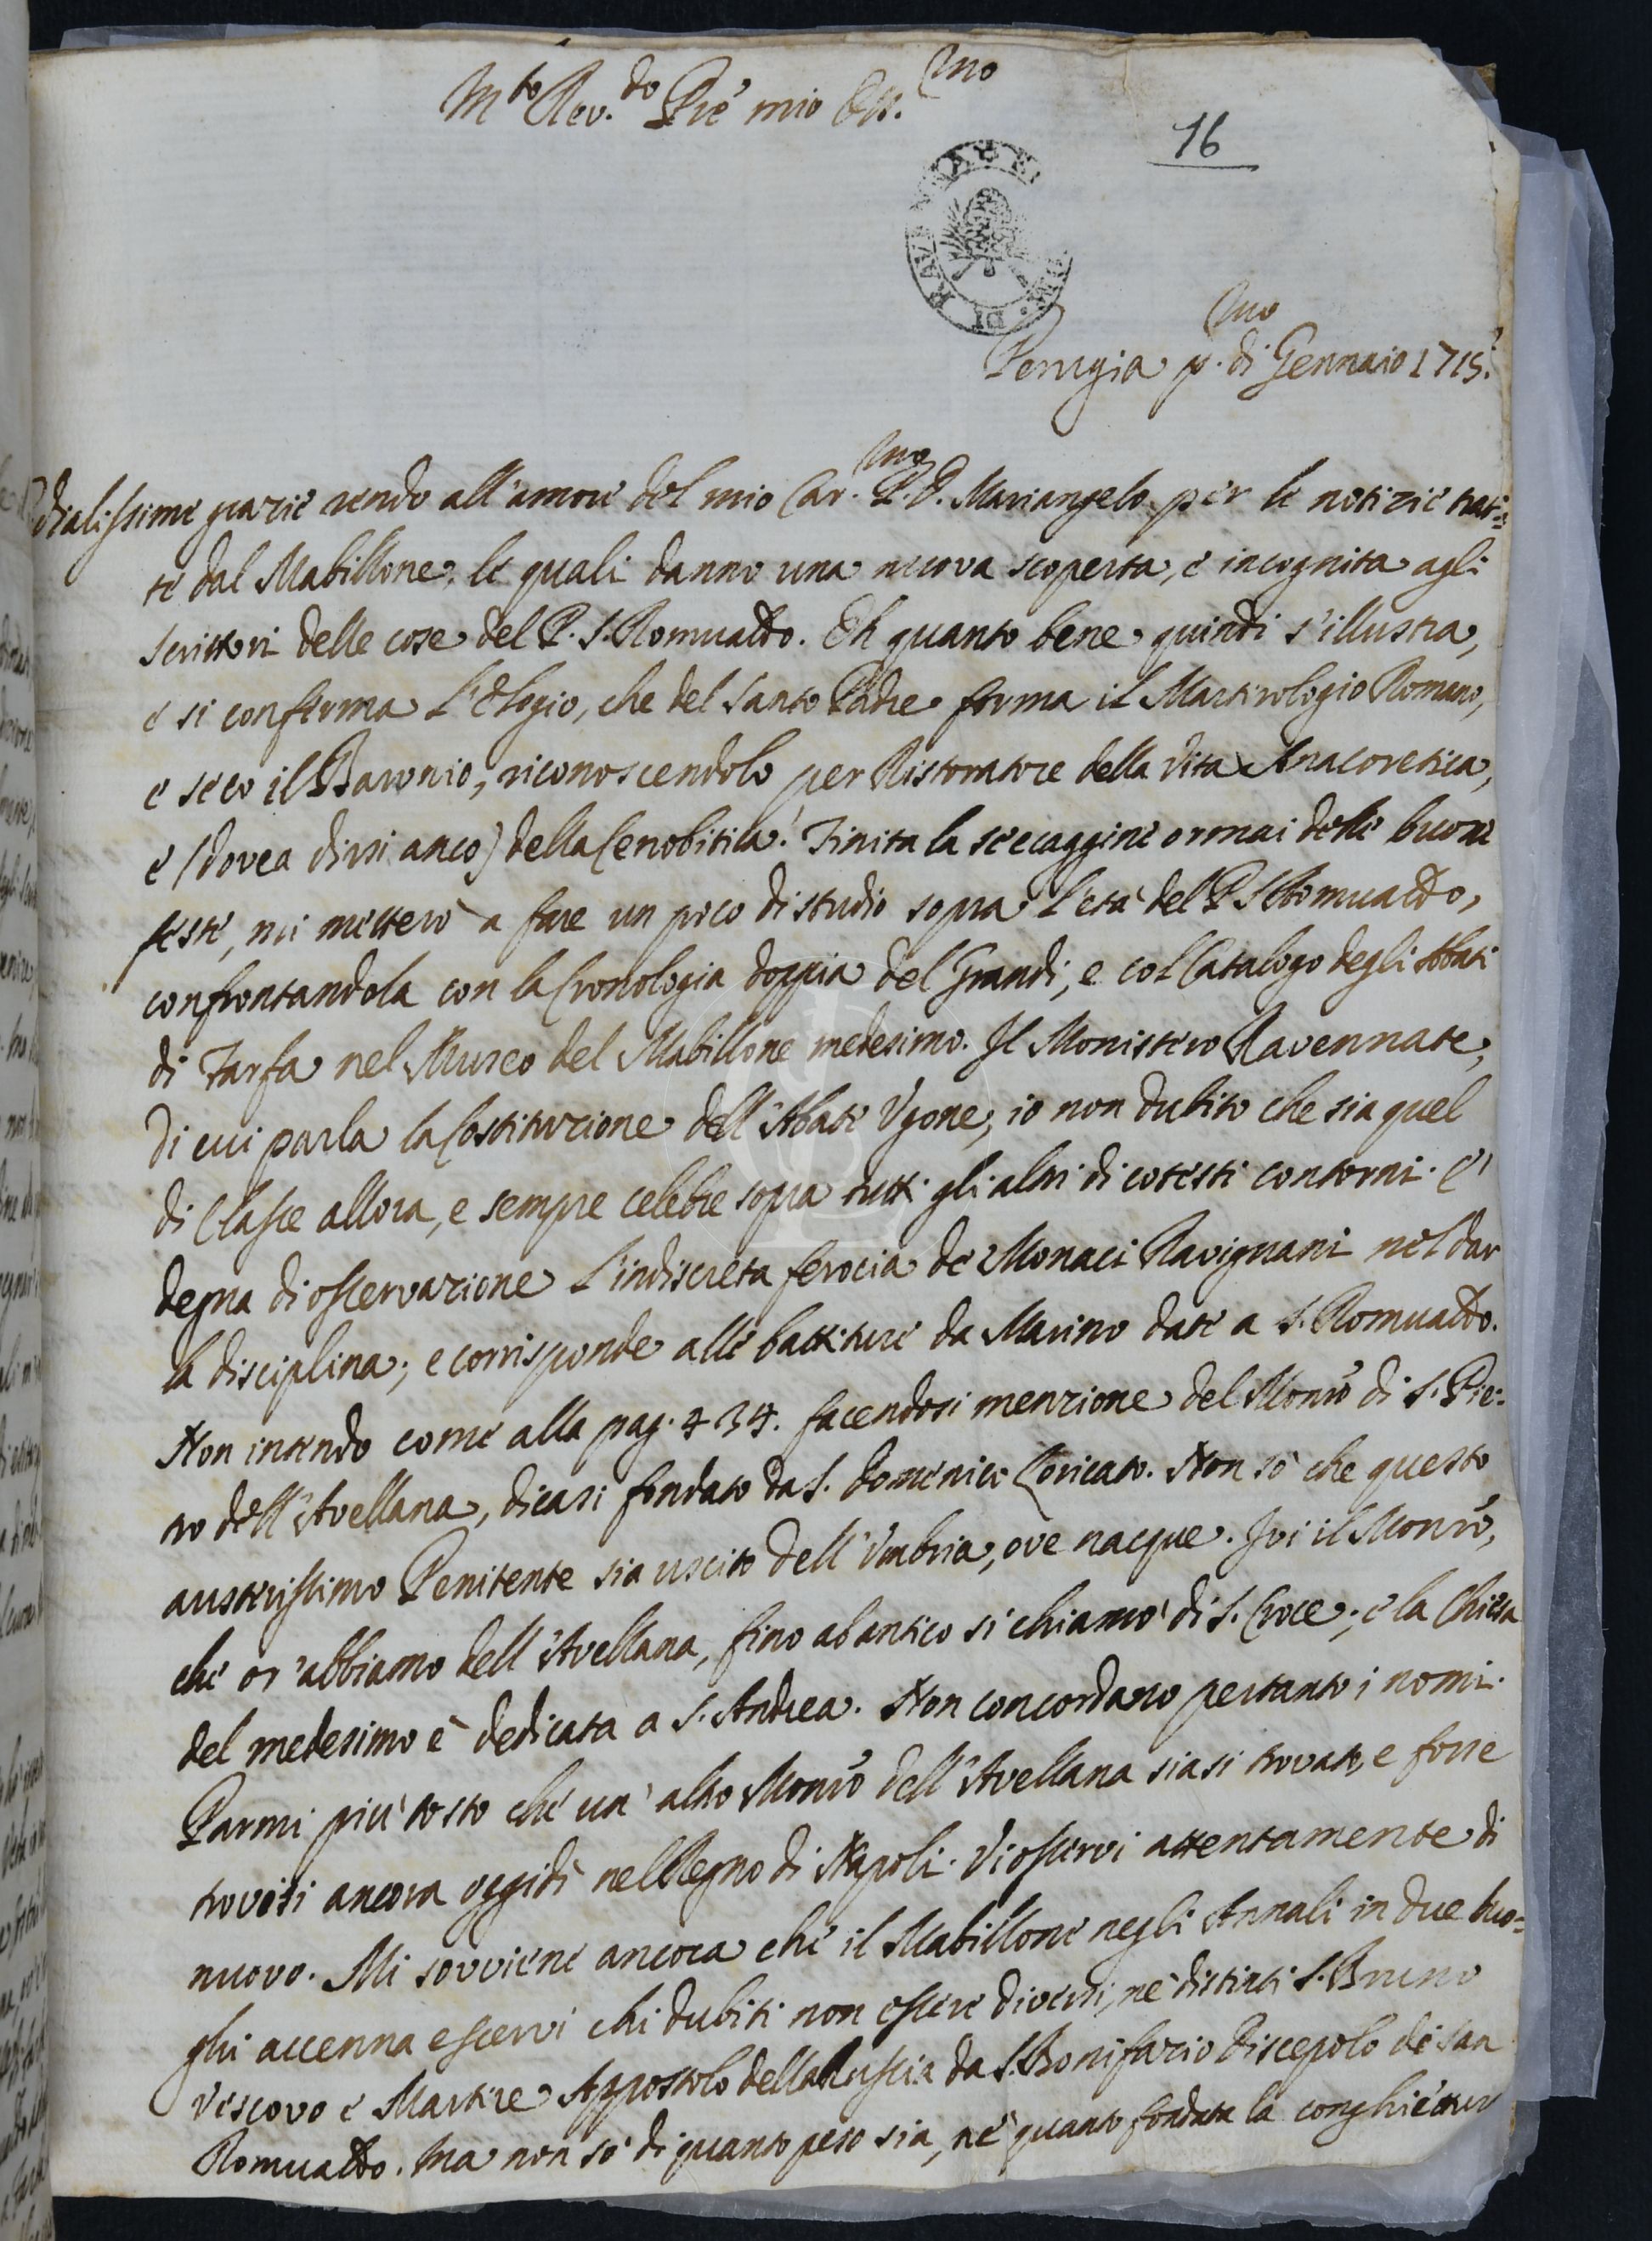 M.to Rev.do Pre mio Oss.mo
16
Perugia p.mo di Gennaio 1715.
dialissime grazie rendo all'amore del mio Car.mo P. D. Mariangelo per le notizie trat=
te dal Mabillone, le quali danno una nuova scoperta, e incognita agli
scrittori delle cose del P. S. Romualdo. Oh quanto bene quindi s'illustra,
e si conferma l'Elogio, che del Santo Padre forma il Martirologio Romano,
e seco il Baronio, riconoscendolo per Ristoratore della Vita Anacoretica,
e (dovea dirsi anco) della Cenobitica! Finita la seccaggine ormai delle buone
feste, mi metterò a fare un poco di studio sopra l'età del P. S. Romualdo,
confrontandola con la Cronologia doppia del Grandi, e col Catalogo degli Abbati
di Farfa nel Museo del Mabillone medesimo. Il Monistero Ravennate,
di cui parla la Costituzione dell'Abate Ugone, io non dubito che sia quel
di Classe allora, e sempre celebre sopra tutti gli altri di cotesti contorni. E'
degna di osservazione l'indiscreta ferocia de' Monaci Ravignani nel dar
la disciplina; e corrisponde alle battiture da Marino date a S. Romualdo.
Non intendo come alla pag. 434. facendosi menzione del Monrō di S. Pie:
tro dell'Avellana, dicasi fondato da S. Domenico Loricato. Non sò che questo
austerissimo Penitente sia uscito dell'Umbria, ove nacque. Ivi il Monrō,
che or'abbiamo dell'Avellana, fino ab antico si chiamò di S. Croce; e la Chiesa
del medesimo è dedicata a S. Andrea. Non concordano pertanto i nomi.
Parmi più tosto che un'altro Monrō dell'Avellana siasi trovato, e forse
trovisi ancora oggidì nel Regno di Napoli. Vi osservi attentamente di
nuovo. Mi sovviene ancora che il Mabillone negli Annali in due luo=
ghi accenna esservi chi dubiti non essere diversi, nè distinti S. Bruno
Vescovo e Martire Appostolo della Russia da S. Bonifazio Discepolo di San
Romualdo. Ma non sò di quanto peso sia, nè quanto fondata la conghiettur